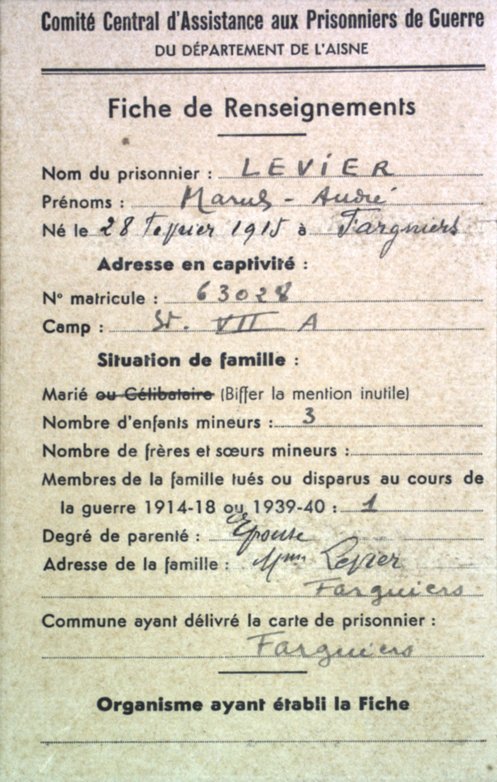 Comité Central d'Assistance aux Prisonniers de Guerre
DU DÉPARTEMENT DE L'AISNE
Fiche de Renseignements
Nom du prisonnier : LEViER
Prénoms : Marcel - André
Né le 28 Février 1915 à Fargniers
Adresse en captivité :
N° matricule : 63028
Camp : St. VII A
Situation de famille :
Marié ou Célibataire (Biffer la mention inutile)
Nombre d'enfants mineurs : 3
Nombre de frères et sœurs mineurs :
Membres de la famille tués ou disparus au cours de
la guerre 1914-18 ou 1939-40 : 1
Degré de parenté : Epouse
Adresse de la famille : Mme Levier
Fargniers
Commune ayant délivré la carte de prisonnier :
Fargniers
Organisme ayant établi la Fiche